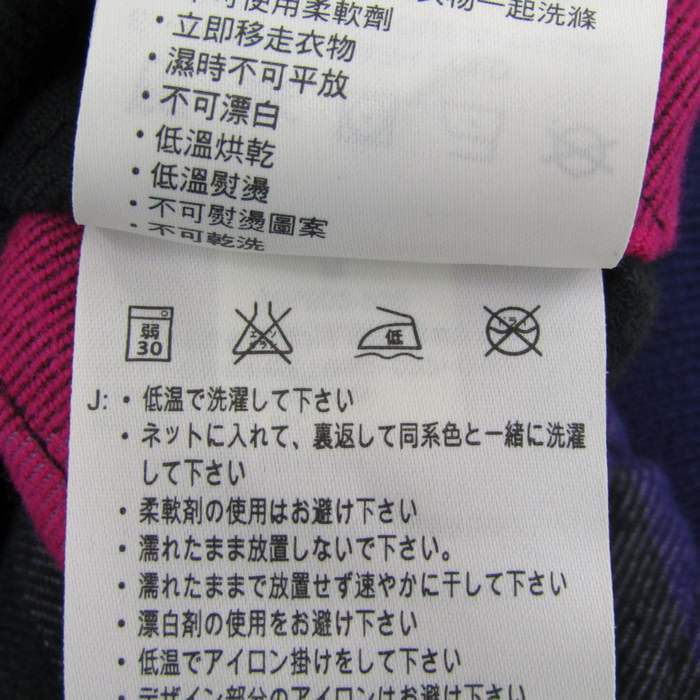 使用柔軟劑
一起洗滌
・立即移走衣物
・濕時不可平放
・不可漂白
・低溫烘乾
・低溫熨燙
・不可熨燙圖案
・不可乾洗
弱
30
エンソ
サラシ
低
ドライ
J: ・低温で洗濯して下さい
・ネットに入れて、裏返して同系色と一緒に洗濯
して下さい
・柔軟剤の使用はお避け下さい
・濡れたまま放置しないで下さい。
・濡れたままで放置せず速やかに干して下さい
・漂白剤の使用をお避け下さい
・低温でアイロン掛けをして下さい
・デザイン部分のアイロンはお避け下さい